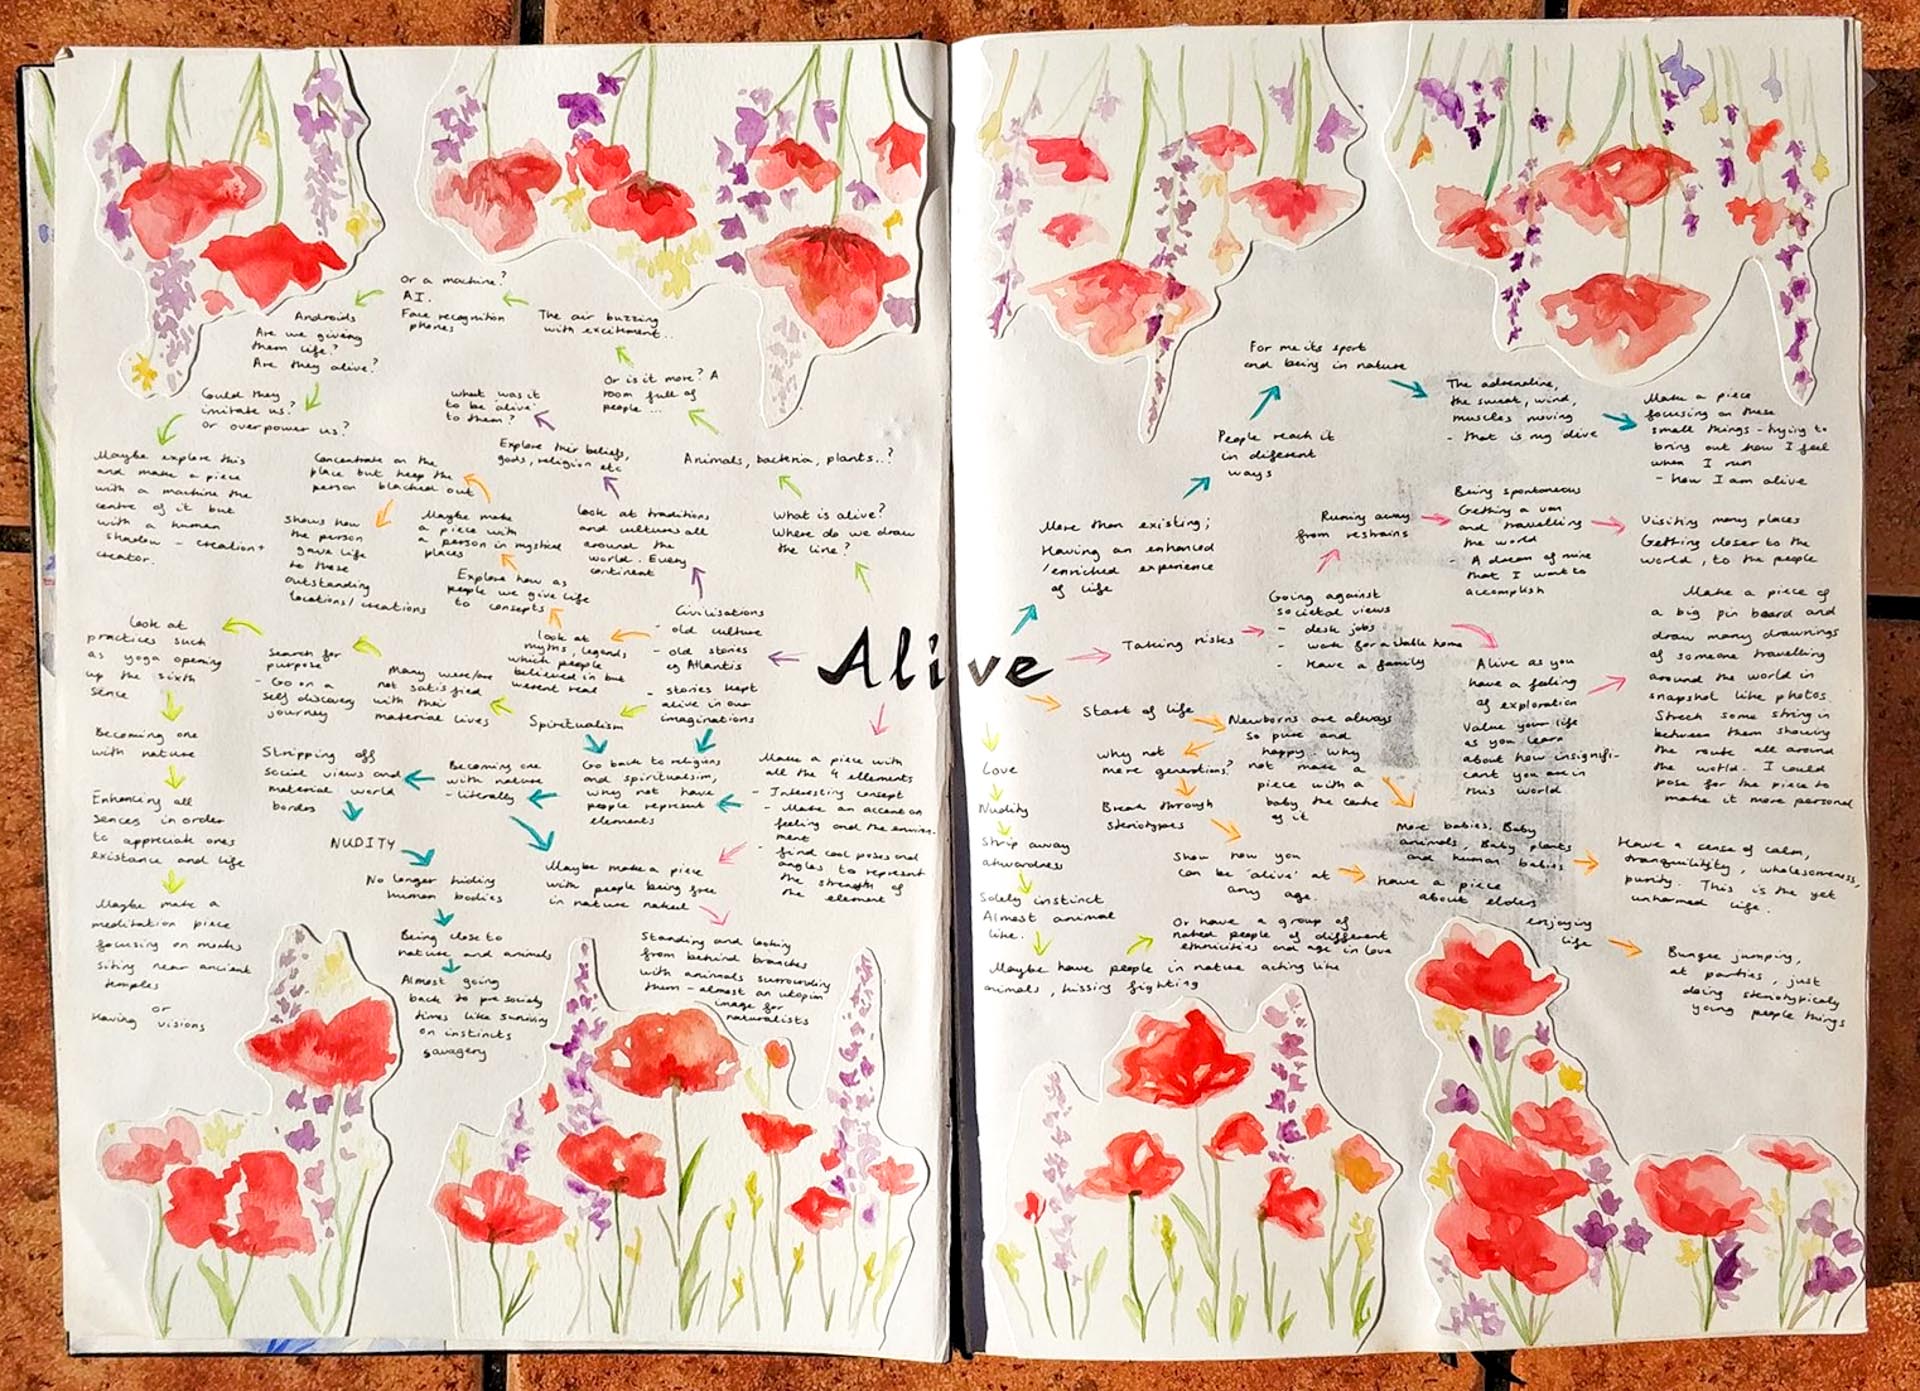 Or a machine?
AI.
Face recognition
phones
The air buzzing
with excitment..
Androids
Are we giveng
them life?
Are they alive?
Or is it more? A
room full of
people ...
Could they
imitate us?
Or overpower us?
what was it
to be 'alive'
to them?
Explore their beliefs,
gods, religion etc
Animals, bacteria, plants..?
Maybe explore this
and make a piece
with a machine the
centre of it but
with a human
shadow - creation +
creator.
Concentrate on the
place but keep the
person blacked out
shows how
the person
gave life
to these
outstanding
locations / creations
Maybe make
a piece with
a person in mystical
places
look at traditions
and cultures all
around the
world. Every
continent
What is alive?
Where do we draw
the line?
Explore how as
people we give life
to concepts
Civilisations
- old culture
- old stories
eg Atlantis
- stories kept
alive in our
imaginations
look at
myths, legends,
which people
believed in but
werent real
look at
practices such
as yoga opening
up the sixth
sence
Search for
purpose
- Go on a
self discovery
journey
Many were/are
not satisfied
with their
material lives
Spiritualism
Becoming one
with nature
Enhancing all
sences in order
to appreciate ones
existance and life
Maybe make a
meditation piece
focusing on monks
siting near ancient
temples
or
Having visions
Stripping off
social views and
material world
borders
Becoming one
with nature
- literally
Go back to religions
and spiritualsim,
why not have
people represent
elements
Make a piece with
all the 4 ellements
- Interesting concept
- Make an accent on
feeling and the environ-
ment
- find cool poses and
angles to represent
the strength of
the element
NUDITY
No longer hiding
human bodies
Maybe make a piece
with people being free
in nature naked
Being close to
nature and animals
Almost going
back to pre society
times like surviving
on instincts
savagery
Standing and looking
from behind branches
with animals surrounding
them - almost an utopian
image for
naturalists
Alive
For me its sport
and being in nature
The adrenaline,
the sweat, wind,
muscles moving
- that is my alive
Make a piece
focusing on these
small things - trying to
bring out how I feel
when I run
- how I am alive
People reach it
in different
ways
More than existing;
Having an enhanced
/enriched experience
of life
Runing away
from restrains
Being spontaneous
Getting a van
and travelling
the world
- A dream of mine
that I want to
accomplish
Visiting many places
Getting closer to the
world, to the people
Taking risks
Going against
societal views
- desk jobs
- work for a stable home
- Have a family
Alive as you
have a feeling
of exploration
Value your life
as you learn
about how insignifi-
cant you are in
this world
Make a piece of
a big pin board and
draw many drawnings
of someone travelling
around the world in
snapshot like photos.
Strech some string in
between them showing
the route all around
the world. I could
pose for the piece to
make it more personal
Start of life
Newborns are always
so pure and
happy why
not make a
piece with a
baby the centre
of it
Why not
more generations?
Break through
steriotypes
Show how you
can be 'alive' at
any age.
More babies. Baby
animals, Baby plants
and human babies
Have a sense of calm,
tranquilitity, wholesomeness,
purity. This is the yet
unharmed life.
Have a piece
about elders
enjoying
life
Bungee jumping,
at parties, just
doing steriotypicaly
young people things
Love
Nudity
Strip away
akwardness
Solely instinct
Almost animal
like.
Or have a group of
naked people of different
ethnicities and age in love
Maybe have people in nature acting like
animals, kissing fighting